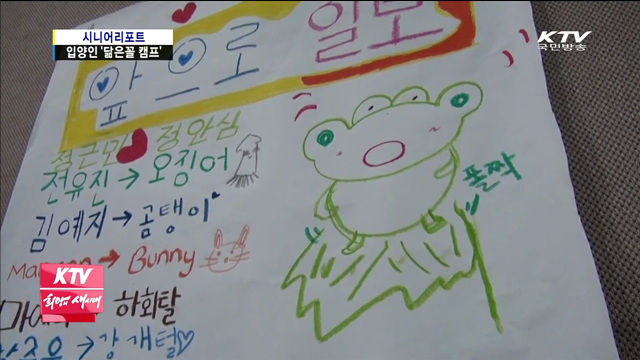 시니어리포트
입양인 '닮은꼴 캠프'
KTV
국민방송
앞으로 일보
정근민 정안심
전유진 → 오징어
김예지 → 곰탱이
→ Bunny
하회탈
→ 강개털
폴짝
KTV
희망의 새시대